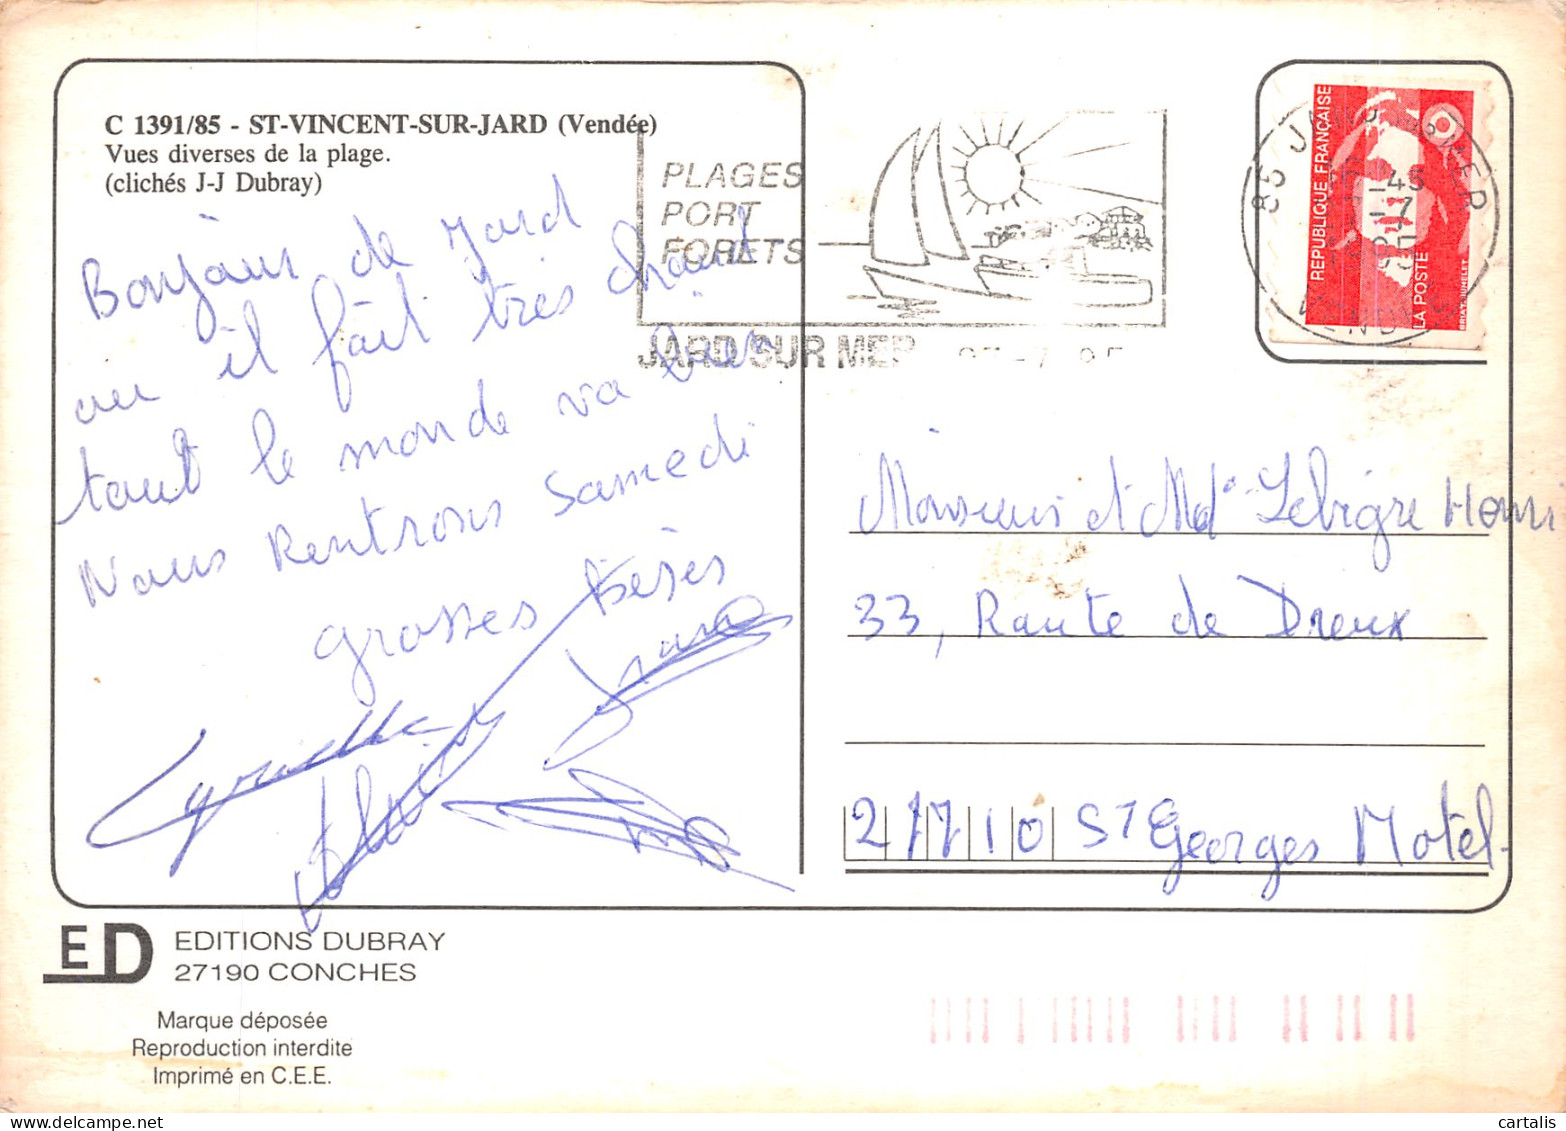 C 1391/85 - ST-VINCENT-SUR-JARD (Vendée)
Vues diverses de la plage.
(clichés J-J Dubray)
Bonjour de Jard
ou il fait très chaud
tout le monde va bien
Nous Rentrons Samedi
grosses bises
PLAGES
PORT
FORETS
JARD SUR MER
REPUBLIQUE FRANÇAISE
LA POSTE
BRIAT-JUMELET
Monsieur et Md Lebigre Henri
33, Route de Dreux
27710 ST Georges Motel
ED
EDITIONS DUBRAY
27190 CONCHES
Marque déposée
Reproduction interdite
Imprimé en C.E.E.
cartalis